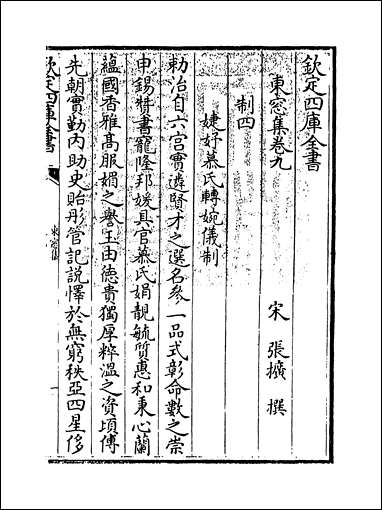 欽定四庫全書
東窓集卷九
宋 張擴 撰
制四
婕妤慕氏轉婉儀制
勅冶自六宫實遴賢才之選名參一品式彰命數之崇
申錫贊書寵隆邦媛具官慕氏娟靚毓質惠和秉心蘭
蘊國香雅髙服媚之譽玉由徳貴獨厚粹温之資頃傅
先朝實勤内助史貽彤管記説懌於無窮秩亞四星侈
欽定四庫全書
東窓集
一